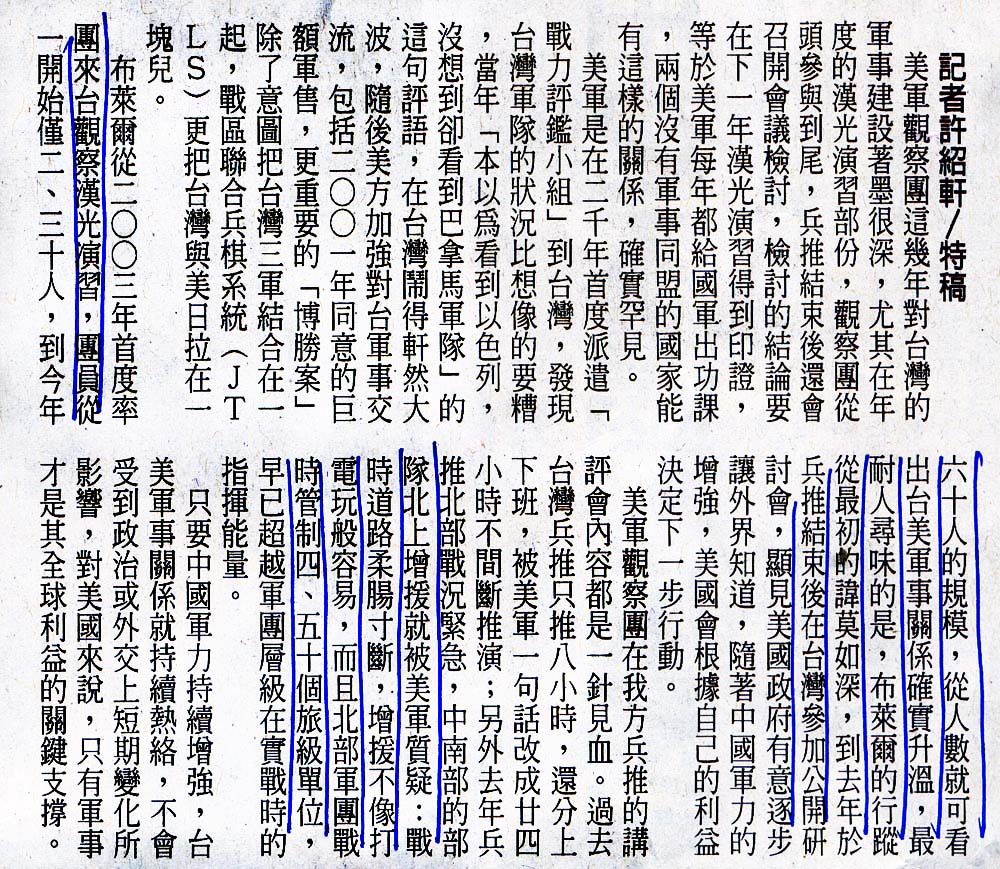 記者許紹軒/特稿
美軍觀察團這幾年對台灣的
軍事建設著墨很深，尤其在年
度的漢光演習部份，觀察團從
頭參與到尾，兵推結束後還會
召開會議檢討，檢討的結論要
在下一年漢光演習得到印證，
等於美軍每年都給國軍出功課
，兩個沒有軍事同盟的國家能
有這樣的關係，確實罕見。
美軍是在二千年首度派遣「
戰力評鑑小組」到台灣，發現
台灣軍隊的狀況比想像的要糟
，當年「本以為看到以色列，
沒想到卻看到巴拿馬軍隊」的
這句評語，在台灣鬧得軒然大
波，隨後美方加強對台軍事交
流，包括二〇〇一年同意的巨
額軍售，更重要的「博勝案」
除了意圖把台灣三軍結合在一
起，戰區聯合兵棋系統（ＪＴ
ＬＳ）更把台灣與美日拉在一
塊兒。
布萊爾從二〇〇三年首度率
團來台觀察漢光演習，團員從
一開始僅二、三十人，到今年
六十人的規模，從人數就可看
出台美軍事關係確實升溫，最
耐人尋味的是，布萊爾的行蹤
從最初的諱莫如深，到去年於
兵推結束後在台灣參加公開研
討會，顯見美國政府有意逐步
讓外界知道，隨著中國軍力的
增強，美國會根據自己的利益
決定下一步行動。
美軍觀察團在我方兵推的講
評會內容都是一針見血。過去
台灣兵推只推八小時，還分上
下班，被美軍一句話改成廿四
小時不間斷推演；另外去年兵
推北部戰況緊急，中南部的部
隊北上增援就被美軍質疑：戰
時道路柔腸寸斷，增援不像打
電玩般容易，而且北部軍團戰
時管制四、五十個旅級單位，
早已超越軍團層級在實戰時的
指揮能量。
只要中國軍力持續增強，台
美軍事關係就持續熱絡，不會
受到政治或外交上短期變化所
影響，對美國來說，只有軍事
才是其全球利益的關鍵支撐。